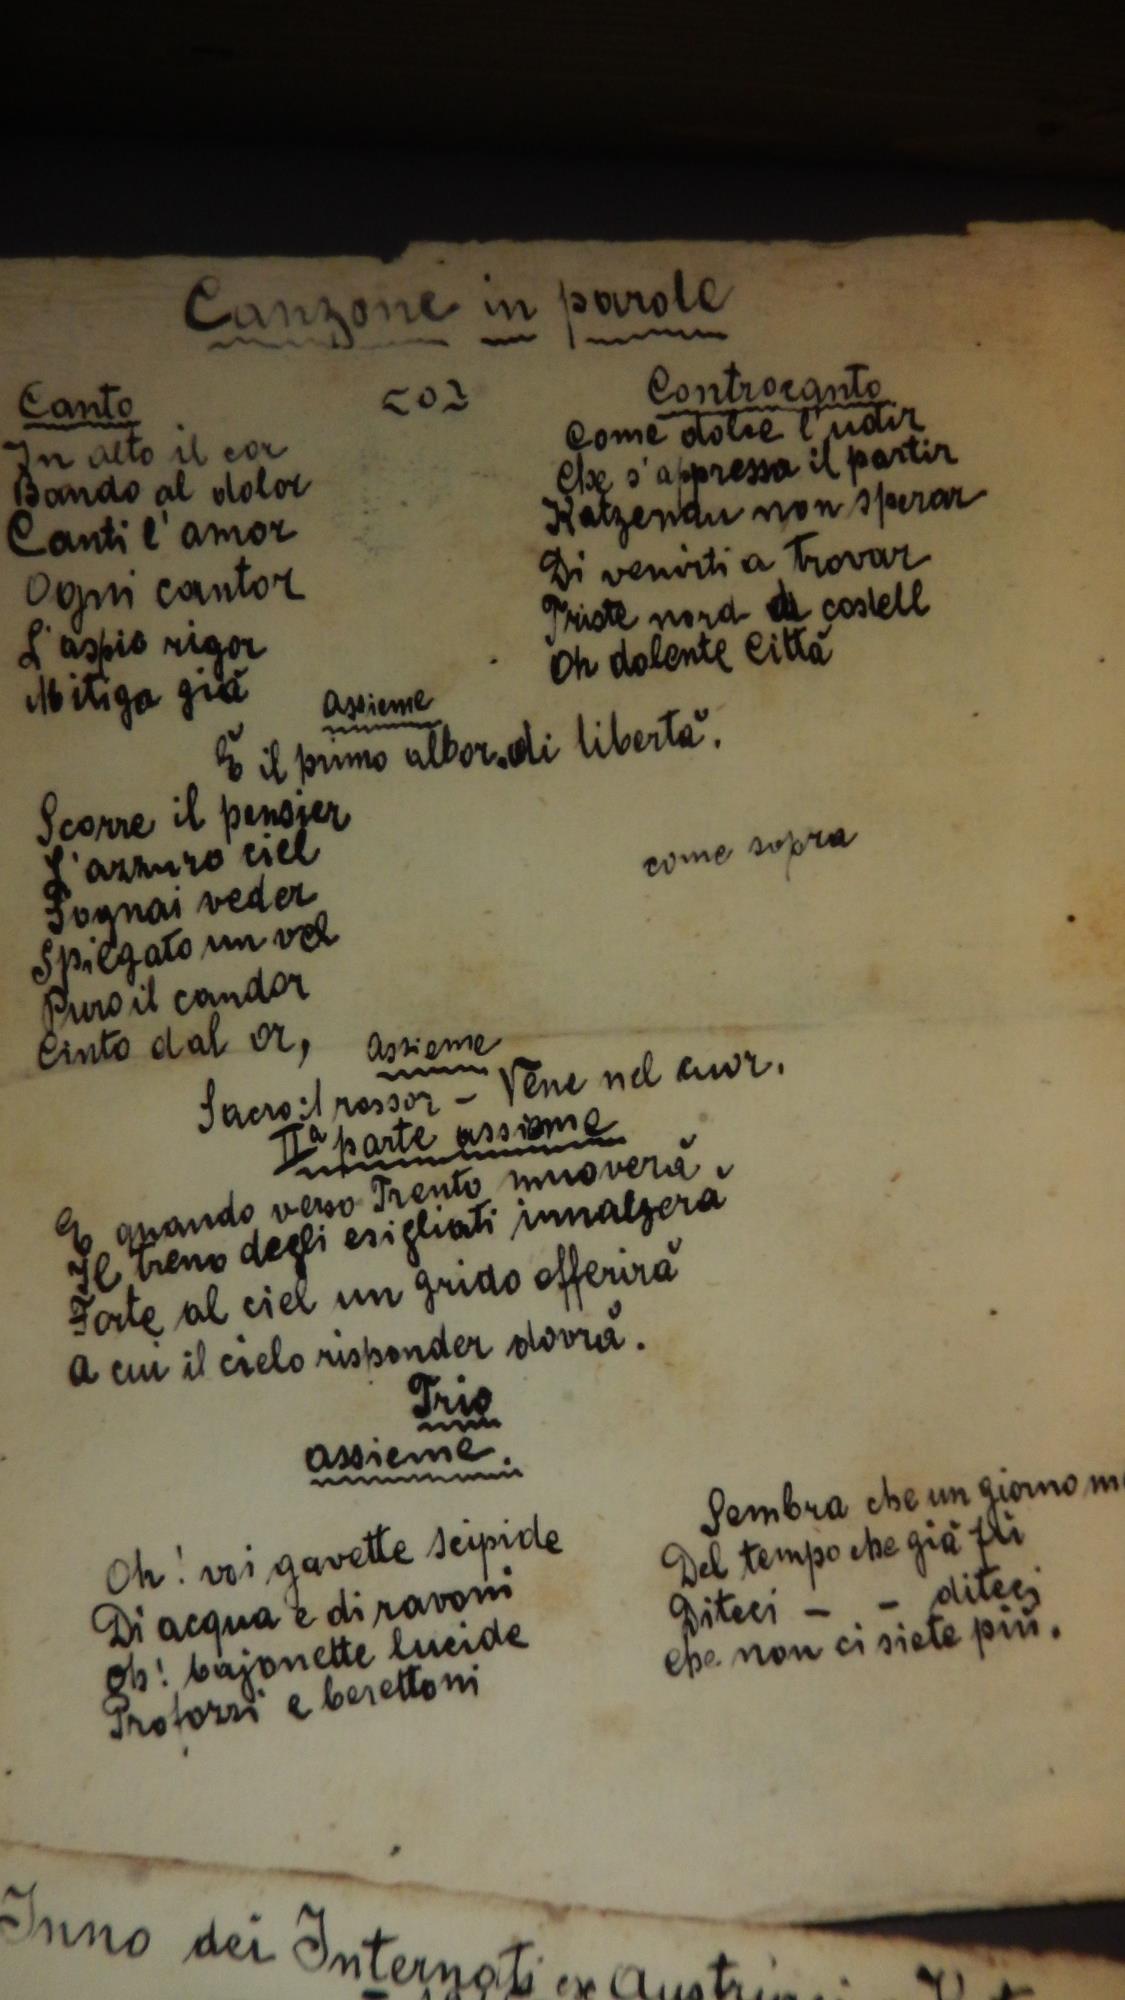 Canzone in parole
Canto
In alto il cor
Bando al dolor
Canti l'amor
Ogni cantor
L'aspio rigor
Mitiga già
Controcanto
Come dolce l'udir
Che s'appressa il partir
Katzenau non sperar
Di venirti a trovar
Triste nord di costell
Oh dolente Città
Assieme
È il primo albor di libertà.
Scorre il pensier
L'azzuro ciel
Sognai veder
Spiegato un vel
Puro il candor
Cinto dal or,
come sopra
Assieme
Sacro il rossor – Vene nel cuor.
IIª parte assieme
E quando verso Trento muoverà
Il treno degli esigliati innalzerà
Forte al ciel un grido offerirà
A cui il cielo risponder dovrà.
Trio
assieme.
Oh! voi gavette scipide
Di acqua e di ravoni
Oh! bajonette lucide
Profozzi e berettoni
Sembra che un giorno
Del tempo che già fu
Diteci – – diteci
che non ci siete più.
Inno dei Internati ex Austriaci